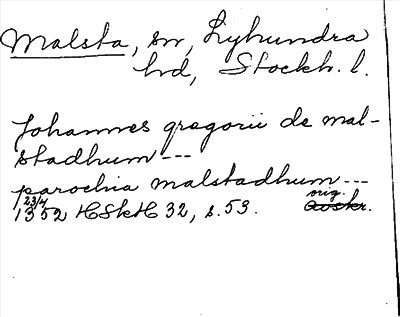 Malsta, sn, Lyhundra
hd, Stockh. l.
Johannes gregorii de mal-
stadhum ---
parochia malstadhum ---
23/4 orig.
1352 HSkH 32, s. 53. Avskr.